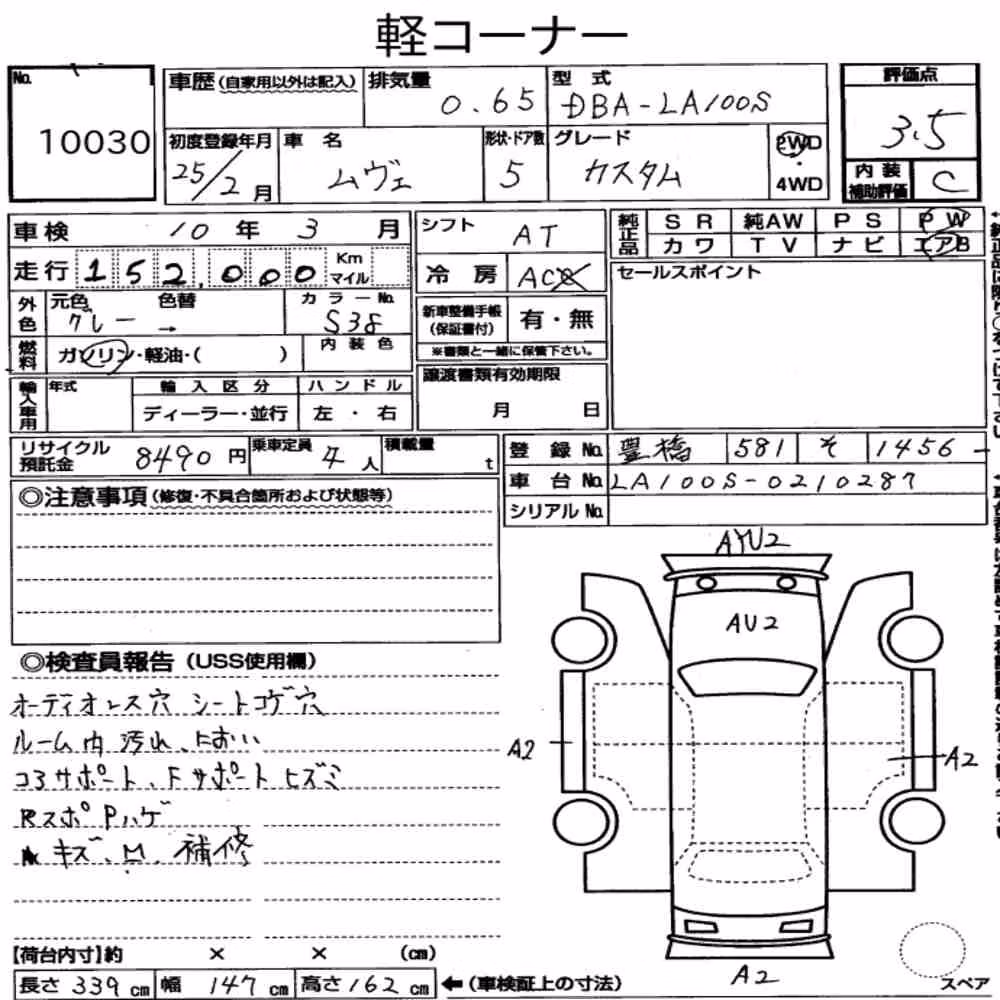 軽コーナー
No. 10030
車歴(自家用以外は記入) 排気量 0.65 型式 DBA-LA100S
初度登録年月 25/2月 車名 ムヴェ 形状・ドア数 5 グレード カスタム 2WD 4WD
評価点 3.5
内装補助評価 C
車検 10年 3月
走行 152,000 Km マイル
外色 元色 グレー → 色替 カラーNo. S38
燃料 ガソリン・軽油・( ) 内装色
輸入車用 年式 輸入区分 ディーラー・並行 ハンドル 左・右
シフト AT
冷房 AC
新車整備手帳(保証書付) 有・無
※書類と一緒に保管下さい。
譲渡書類有効期限 月 日
純正品 SR 純AW PS PW
カワ TV ナビ エアB
セールスポイント
リサイクル預託金 8490円 乗車定員 4人 積載量 t
登録No. 豊橋 581 そ 1456
車台No. LA100S-0210287
シリアルNo.
◎注意事項(修復・不具合箇所および状態等)
◎検査員報告(USS使用欄)
オーディオレス穴 シートコゲ穴
ルーム内 汚れ、におい
コアサポート、Fサポートヒズミ
RスポPハゲ
キズ、凹、補修
AYU2
AU2
A2
A2
A2
【荷台内寸】約 × × (cm)
長さ 339cm 幅 147cm 高さ 162cm ←(車検証上の寸法)
スペア